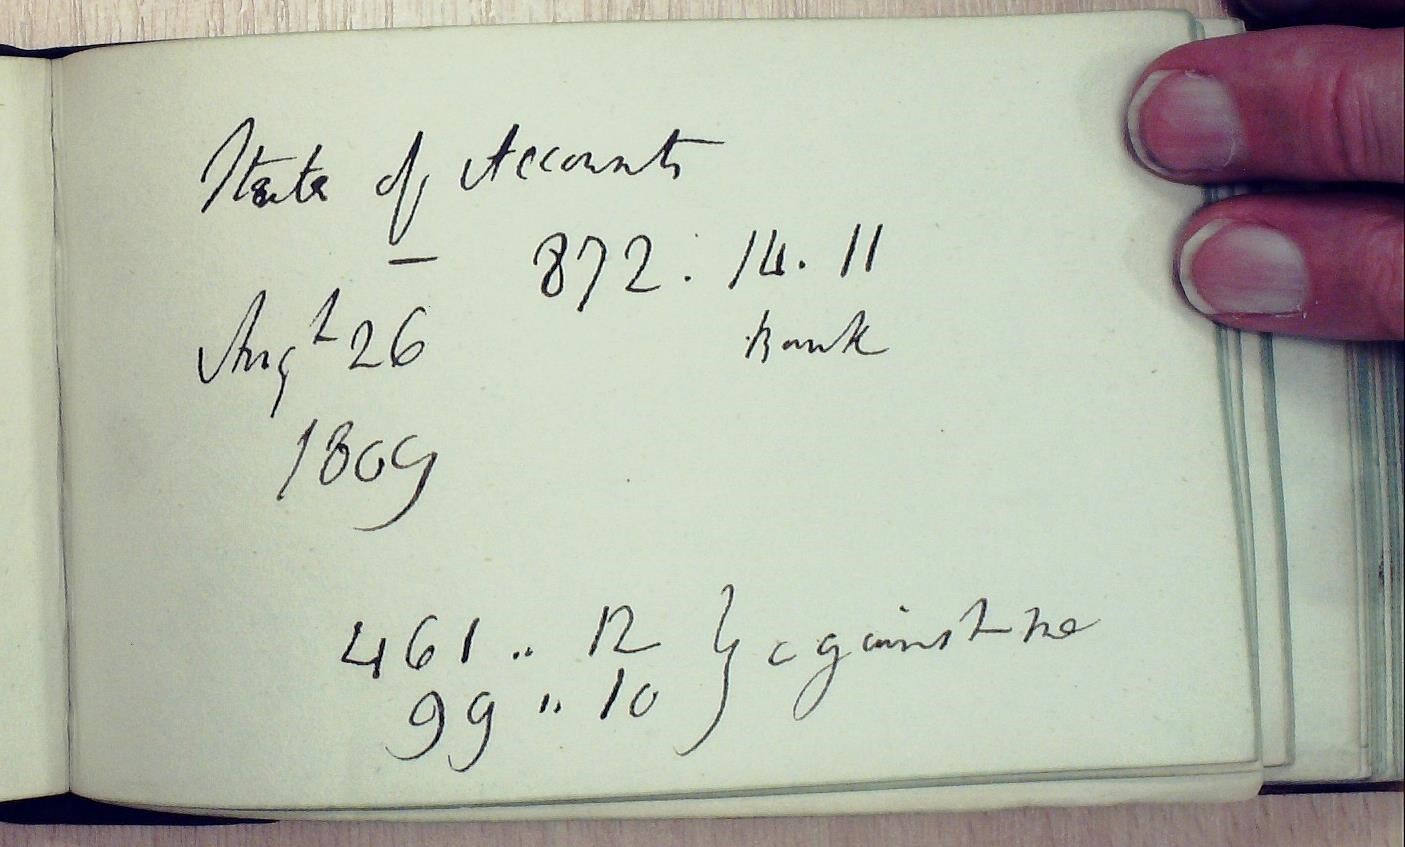 State of Accounts
— 872 : 14 . 11
Augt 26 Bank
1809
461 .. 12 } against me
99 .. 10